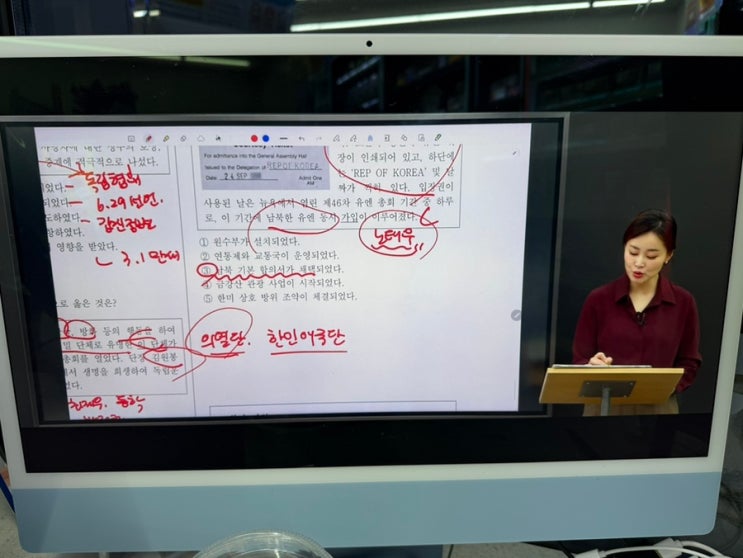 중재에 적극적으로 나섰다.
독립협회
6.29 선언.
3.1 만세
영향을 받았다.
For admittance into the General Assembly Hall
Issued to the Delegation of REP OF KOREA
Date 24 SEP
Admit One
장이 인쇄되어 있고, 하단에
는 'REP OF KOREA' 및 날
짜가 적혀 있다. 입장권이
사용된 날은 뉴욕에서 열린 제46차 유엔 총회 기간 중 하루
로, 이 기간에 남북한 유엔 동시 가입이 이루어졌다.
노태우
① 원수부가 설치되었다.
② 연통제와 교통국이 운영되었다.
③ 남북 기본 합의서가 채택되었다.
④ 금강산 관광 사업이 시작되었다.
⑤ 한미 상호 방위 조약이 체결되었다.
로 옳은 것은?
등의 행동을 하여
밀 단체로 유명한 이 단체가
총회를 열었다. 단장 김원봉
에서 생명을 희생하여 독립운
의열단. 한인애국단